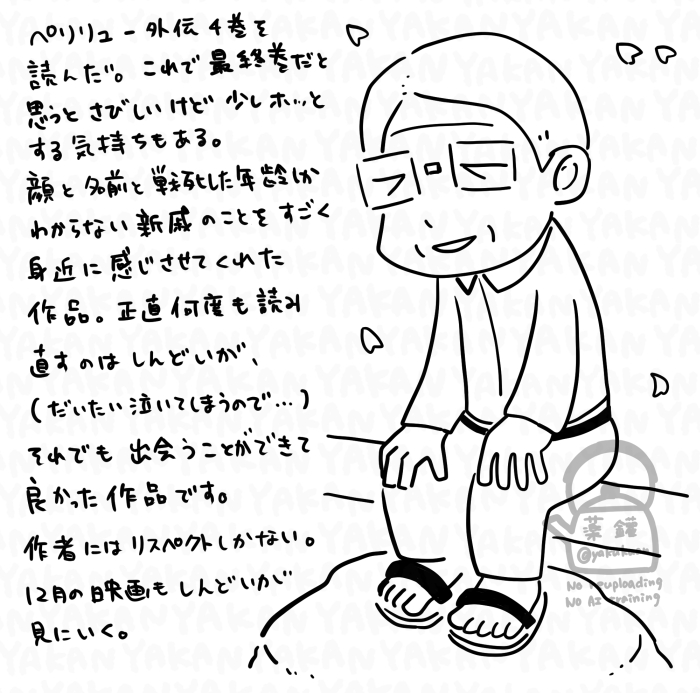 ペリリュー外伝4巻を
読んだ。これで最終巻だと
思っとさびしいけど少しホッと
する気持ちもある。
顔と名前と戦死した年齢しか
わからない親戚のことをすごく
身近に感じさせてくれた
作品。正直何度も読み
直すのはしんどいが、
(だいたい泣いてしまうので…)
それでも出会うことができて
良かった作品です。
作者にはリスペクトしかない。
12月の映画もしんどいが
見にいく。
薬鑵
No reuploading
No AI training
YAKAN YAKAN YAKAN